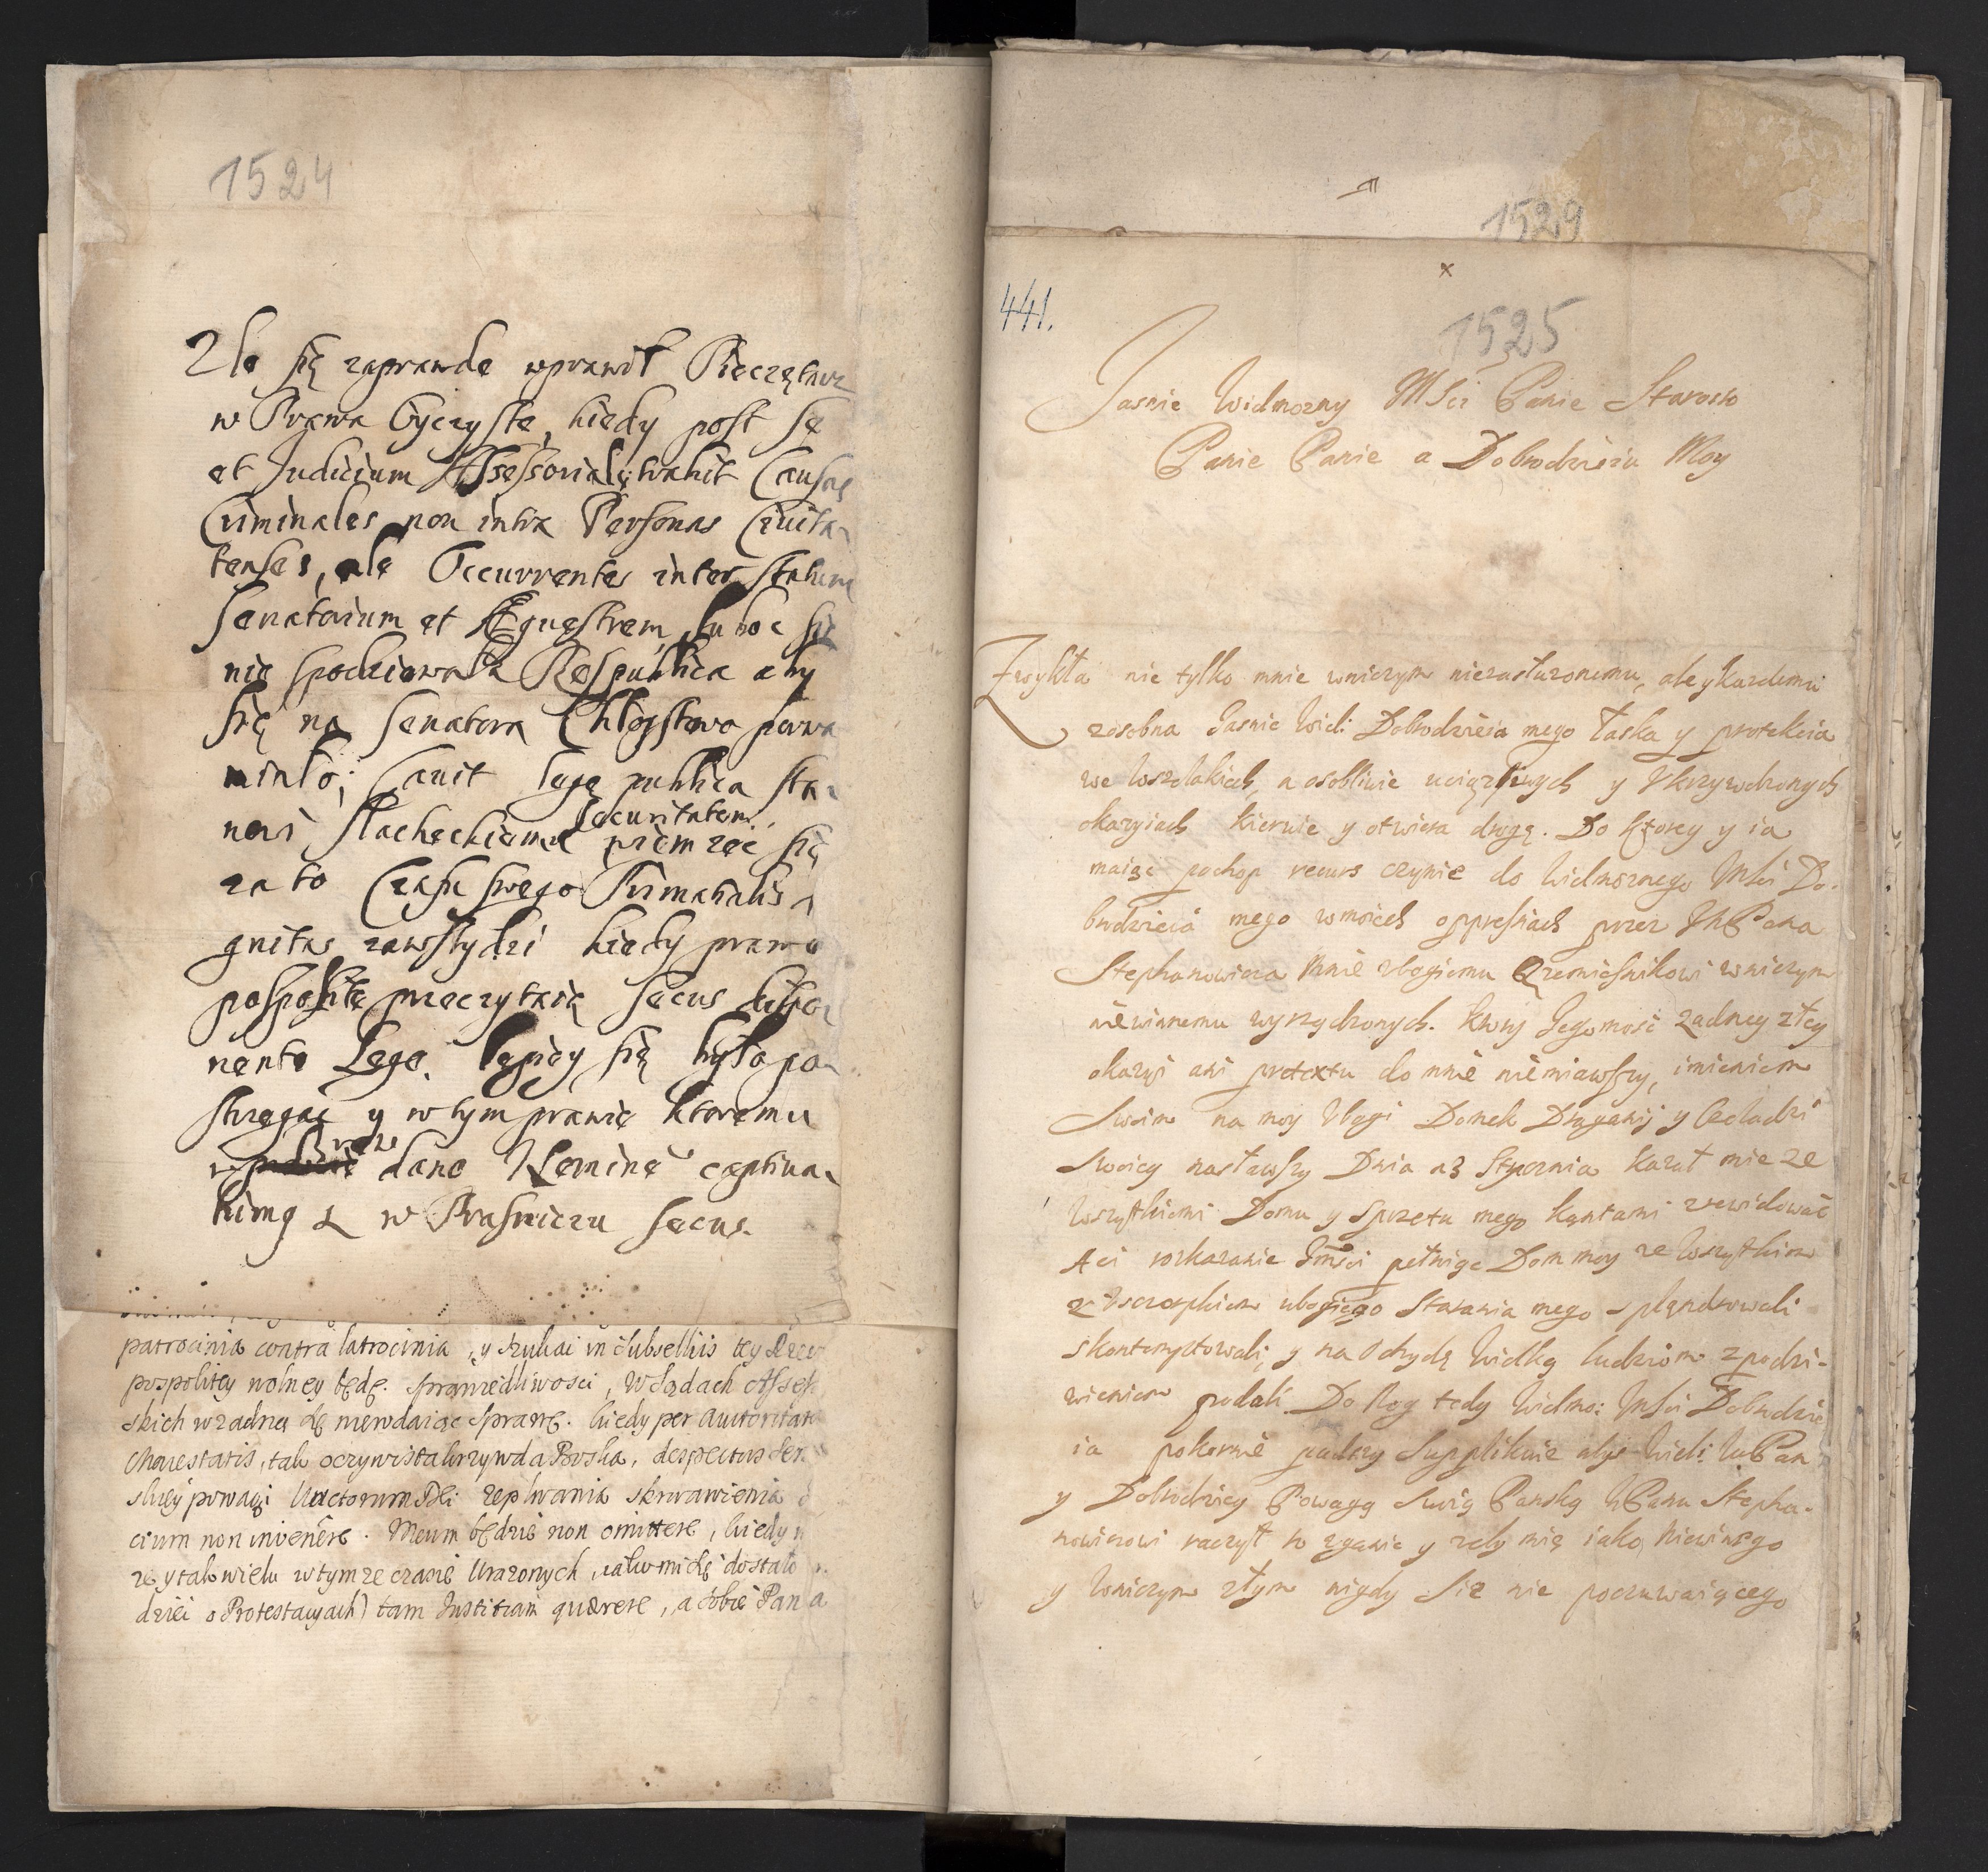 1524
Zle się zaprawde wprawił Pieczętarz
w Prawa Oyczyste, kiedy post Se
et Judicium Assessoriale trahit Causas
Criminales non intra Personas Civita-
tenses, ale Occurrentes inter Statum
Senatorium et Equestrem, tu bo się
nie spodziewała Respublica aby
się na Senatora Chłopstwo porwa
miało; cavit lege publica sta-
nowi Slacheckiemu securitatem,
za to Czasu swego Primatialis
gnitas zawstydzi kiedy prawo
pospolite przeczytaią secus dispo-
nente Lege. lepiey się było po-
strzegac y w tym prawie ktoremu
dano Neminem captiva-
bimus w Prasniczu secus.
patrocinia contra latrocinia, y szukai in subselliis tey Rzeczy
pospolitey wolney będę. Sprawiedliwosci, w Sądach Assess
skich w zadną się niewdaiąc Sprawę. kiedy per Autoritatem
Maiestatis, tak oczywista krzywda Boska, despectus Sen
cium non invenere. Meum będzie non omittere, kiedy
ze y tak wielu w tymze czasie Urazonych, iako mi się dostało
dzieć o Protestacyach) tam Justitiam quærere, a sobie Pana
1529
x
441.
1525
Jasnie Wielmozny MSci Panie Starosto
Panie Panie a Dobrodzieiu Moy
Zwykła nie tylko mnie wniczym niezasłuzonemu, ale y kazdemu
zosobna Jasnie Wiel: Dobrodzieia mego łaska y protekcia
we wszelakich, a osobliwie uciązliwych y Ukrzywdzonych
okazyiach kieruie y otwiera drogę. Do ktorey y ia
maiąc pochop recurs czynie do Wielmoznego MSci Do-
brodzieia mego w moich oppressiach przez JhPana
Stephanowicza mnie ubogiemu Rzemiesnikowi wniczym
niewinnemu wyrządzonych. Ktory Jegomość zadney złey
okazyi ani pretextu do mnie niemiawszy, imieniem
Swoim na moy Ubogi Domek Draganij y Czeladzi
Swoiey nasławszy Dnia 23 Stycznia kazał mie ze
wszystkiemi Domu y Sprzetu mego kątami zrewidować
A ci roskazanie Jmści pełniąc Dom moy ze wszytkim
z ubogiego Starania mego splądrowali
skontemptowali, y na Ochydę wielką ludziom z podzi-
wieniem podali. Do Nog tedy Wielmo: MSci Dobrodzie
ia pokornie padszy Supplikuie abyś Wiel: M Pan
y Dobrodziey Powagą Swoią Panską JhPanu Stepha-
nowiczowi raczył to zganic y zeby mię iako Niewinego
y wniczym złym nigdy się nie poczuwaiącego